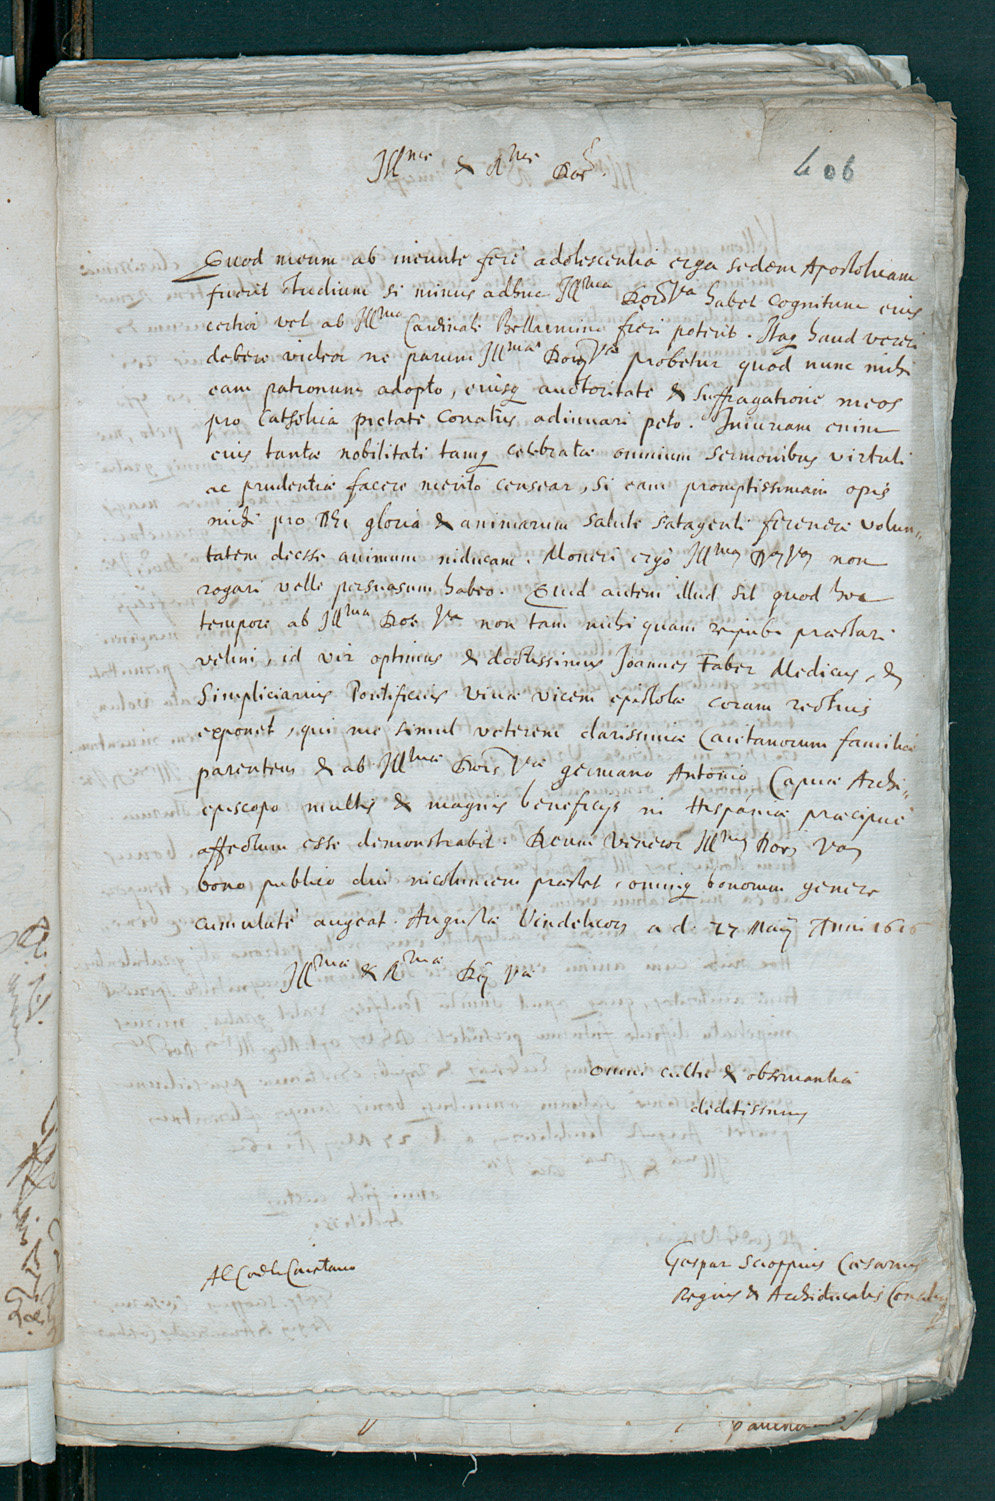 Ill.me & R.me Dne
406
Quod meum ab ineunte ferè adolescentia erga sedem Apostolicam
fuerit studium si minus adhuc Ill.ma Dois V.ra habet cognitum eius
certior vel ab Ill.mo Cardinale Bellarmino fieri poterit. Itaq haud vereri
debere videor ne parum Ill.mae Doi V.ae probetur quod nunc mihi
eam patronum adopto, eiusq auctoritate & suffragatione meos
pro Catholica pietate conatus adiuuari peto. Iniuriam enim
eius tantae nobilitati tamq celebratae omnium sermonibus virtuti
ac prudentiae facere meritò censear, si eam promptissimam opis
mihi pro Dei gloria & animarum salute satagenti ferendae volun„
tatem deesse animum inducam. Moneri ergò Ill.mam D. V. non
rogari velle persuasum habeo. Quid autem illud sit quod hoc
tempore ab Ill.ma Doe V.ra non tam mihi quam reipub. praestari
velim, id vir optimus & doctissimus Joannes Faber Medicus, &
Simpliciarius Pontificius vivae vicem epistolae coram rectius
exponet, qui me simul veterem clarissimae Caietanorum familiae
parentem & ab Ill.mae Dois V.ae germano Antonio Capuae Archi„
episcopo multis & magnis beneficijs in Hispania praecipuè
affectum esse demonstrabit. Deum veneror Ill.mam Doem Vam
bono publico diu incolumem praestet, omniq bonorum genere
cumulatè augeat. Augustae Vindelicor. a. d. 27 Maij Anni 1616
Ill.mae & R.mae D. V.ae
omni cultu & observantia
deditissimus
Al Cardle Caietano
Gaspar Scioppius Caesareus
Regius & Archiducalis